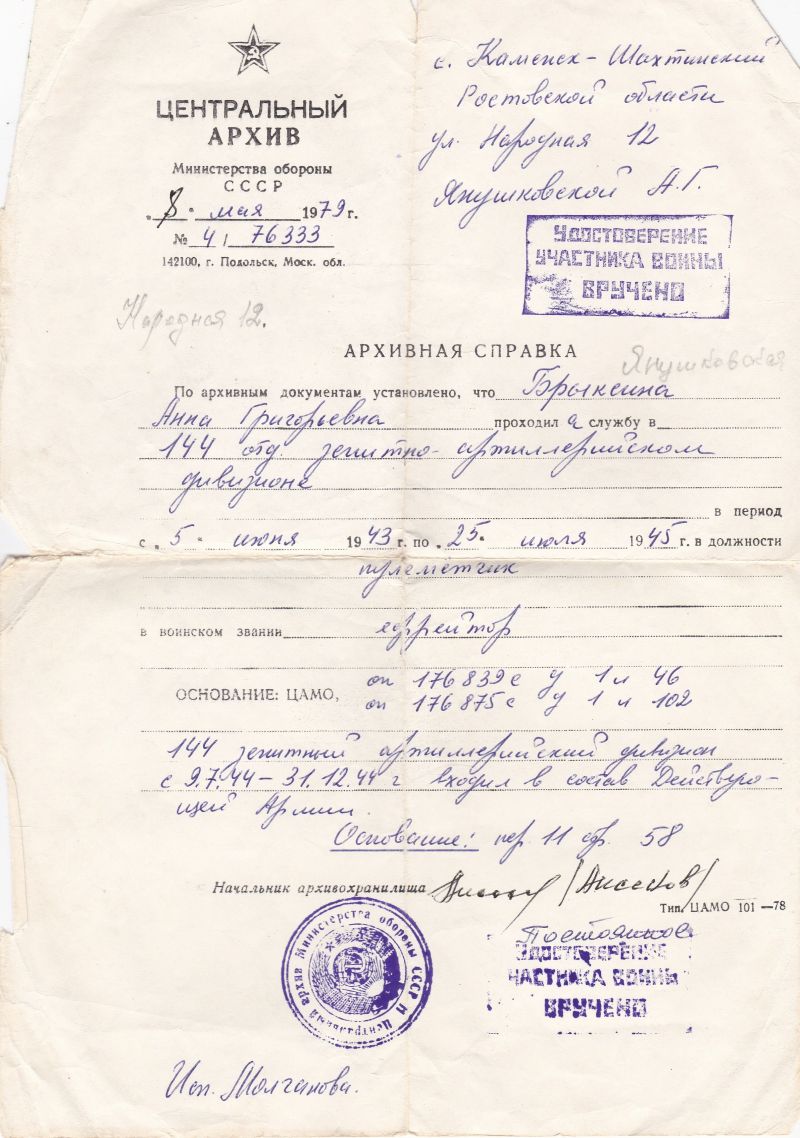 ЦЕНТРАЛЬНЫЙ
АРХИВ
Министерства обороны
СССР
„8" мая 1979 г.
№ 41 76333
142100, г. Подольск, Моск. обл.
г. Каменск-Шахтинский
Ростовской области
ул. Народная 12
Янушковской А.Г.
УДОСТОВЕРЕНИЕ
УЧАСТНИКА ВОЙНЫ
ВРУЧЕНО
Народная 12.
АРХИВНАЯ СПРАВКА
Янушковская
По архивным документам установлено, что Брыксина
Анна Григорьевна проходил а службу в
144 отд. зенитно-артиллерийском
дивизионе
в период
с „5" июня 1943 г. по „25" июля 1945 г. в должности
пулеметчик
в воинском звании ефрейтор
ОСНОВАНИЕ: ЦАМО, оп 176839с д 1 л 46
оп 176875с д 1 л 102
144 зенитный артиллерийский дивизион
с 9.7.44 – 31.12.44 г входил в состав Действую-
щей Армии.
Основание: пер. 11 стр. 58
Начальник архивохранилища /Аксенов/
Тип. ЦАМО 101—78
Постоянное
УДОСТОВЕРЕНИЕ
УЧАСТНИКА ВОЙНЫ
ВРУЧЕНО
Центральный архив Министерства обороны СССР
Исп. Молчанова.